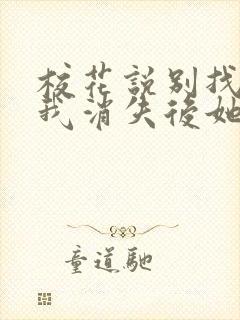 校花說別找
我消失後她
童道馳